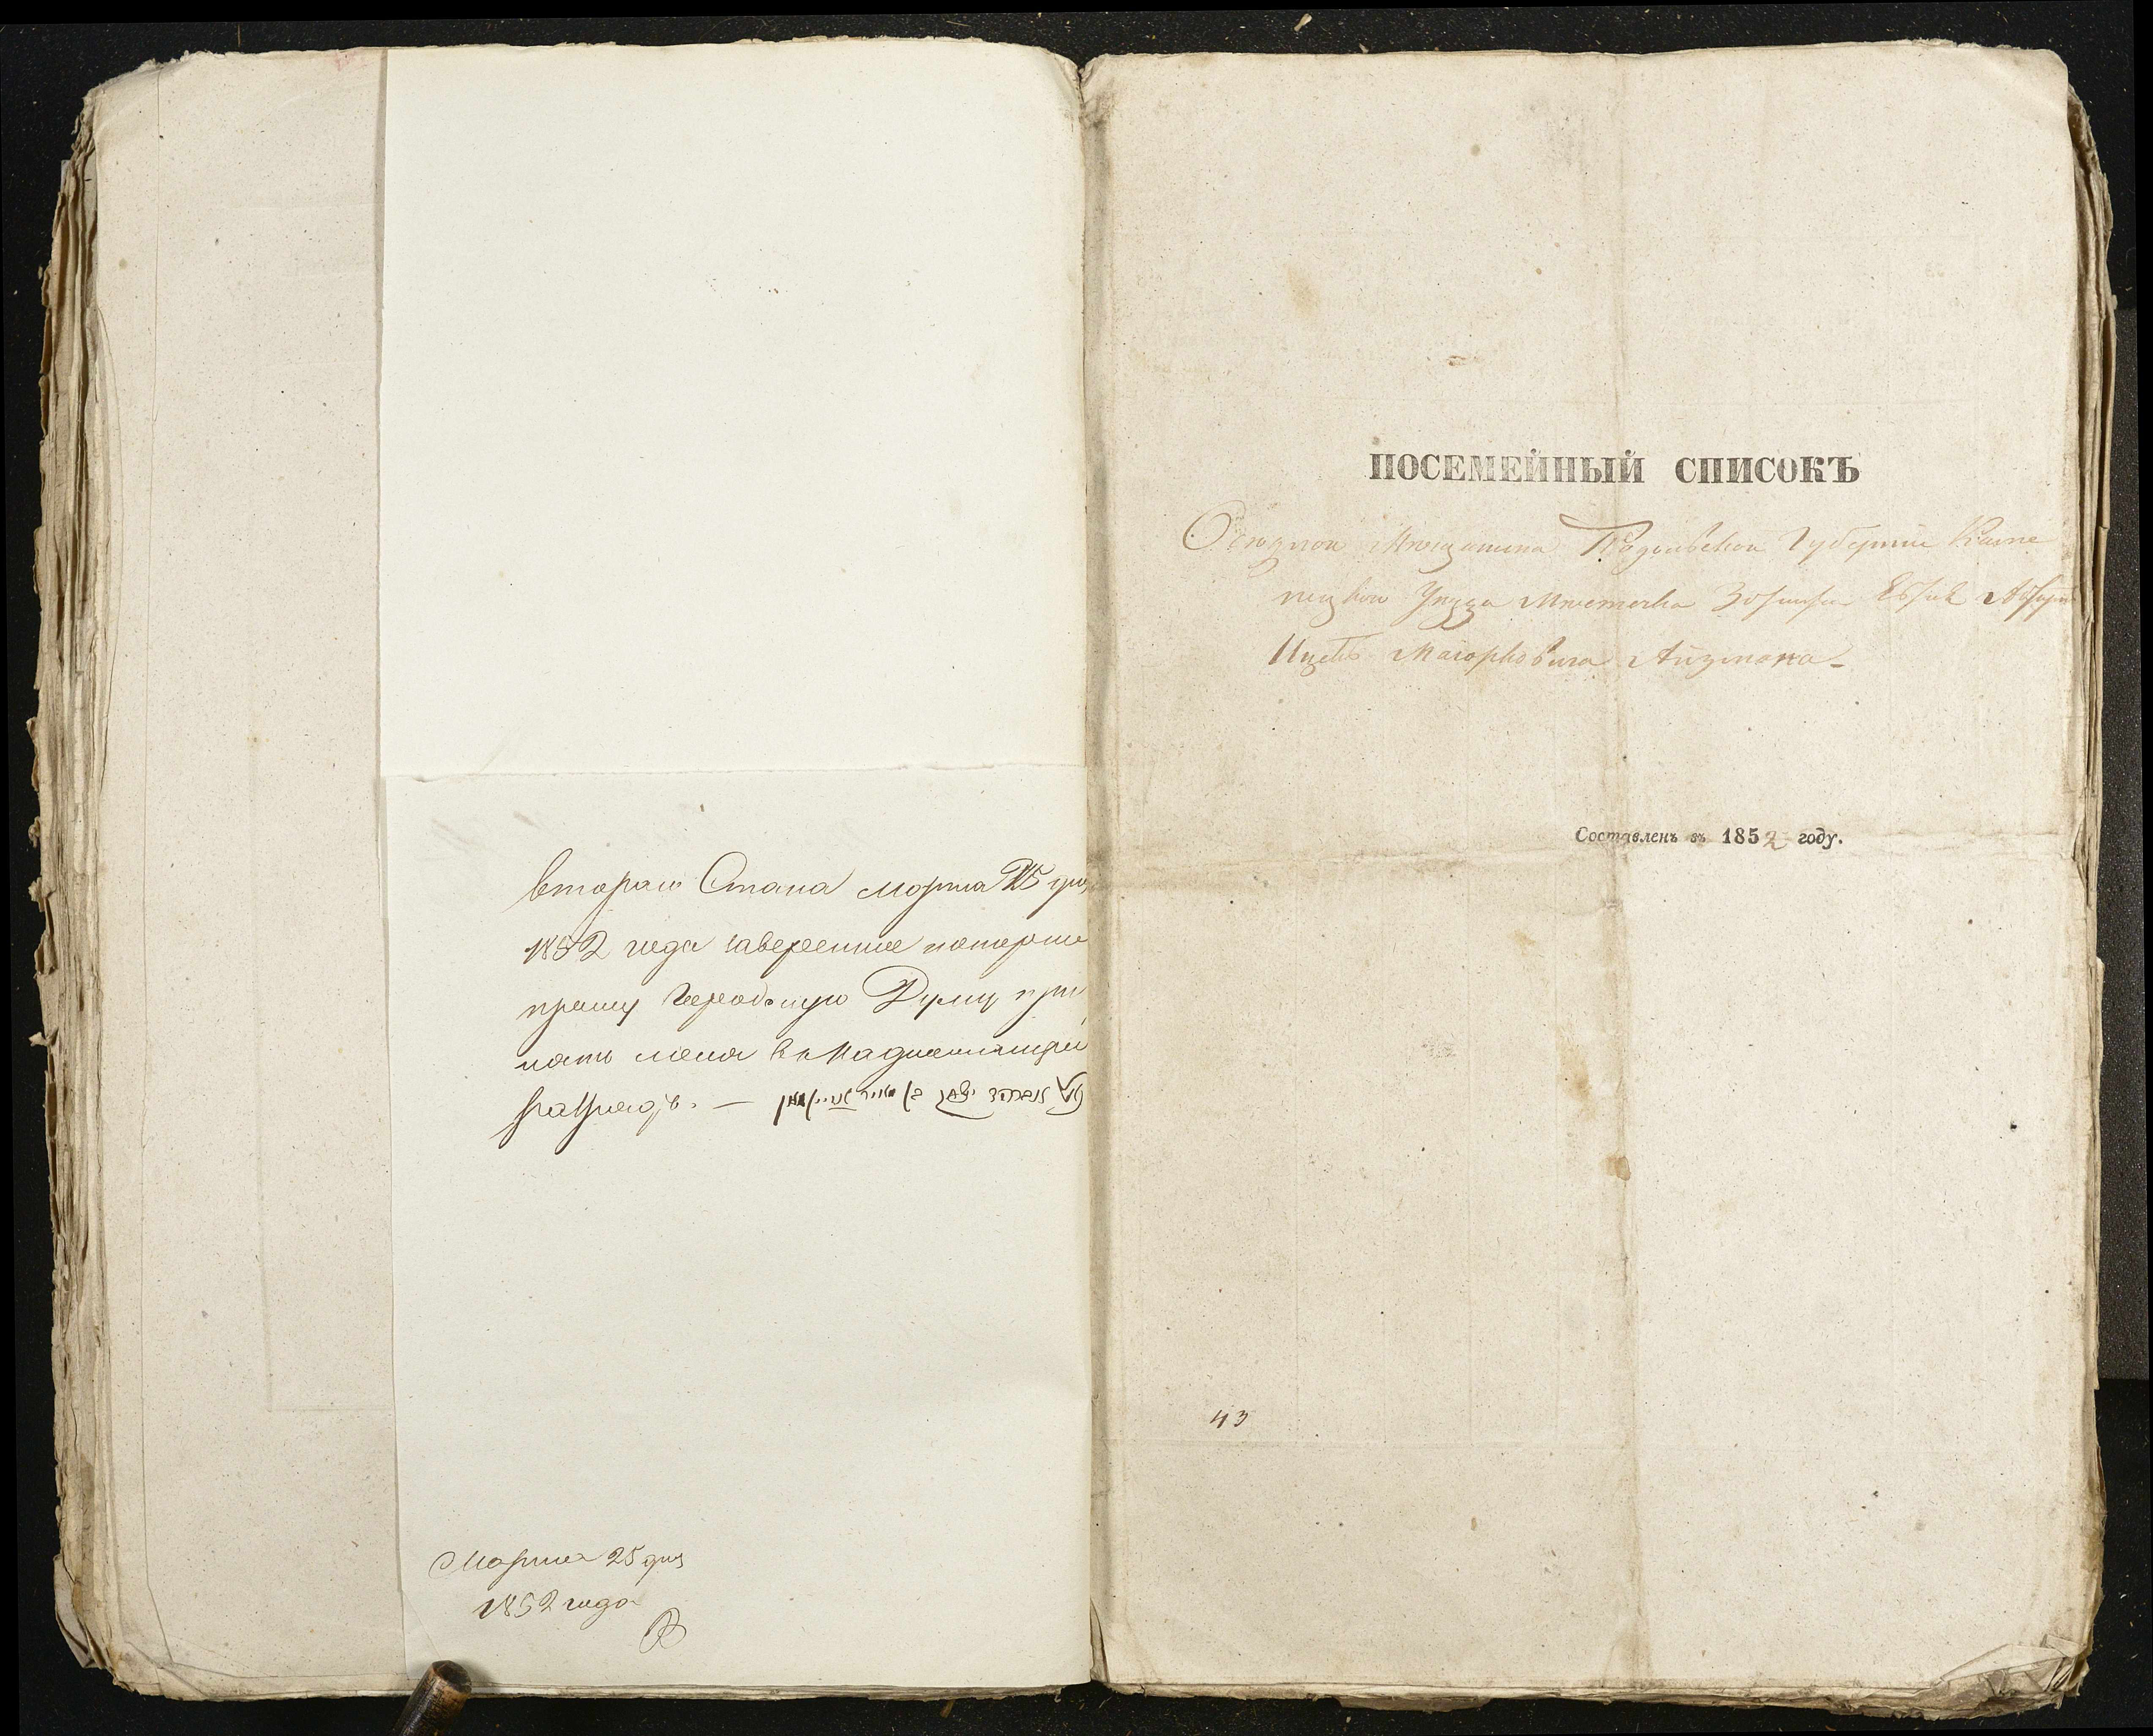 втораго Стана марта 25 дня
1852 года заверенные которые
прошу Городскую Думу при
нять меня въ надлежащей
разрядъ. —
Марта 25 дня
1852 года
ПОСЕМЕЙНЫЙ СПИСОКЪ
Оседлой Мещанина Подольской Губернии Каме
нецкой Уезда Местечка Еврея
Ицекъ Майорковича Айзмана
Составленъ въ 1852 году.
43